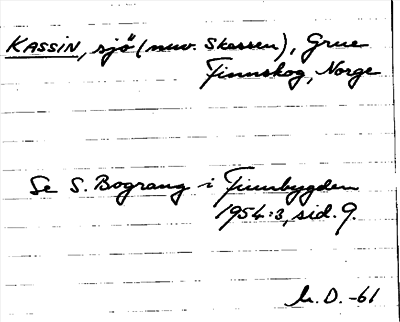 KASSIN, sjö (nuv. Skassen), Grue
Finnskog, Norge
Se S. Bograng i Finnbygden
1954:3, sid. 9.
h. D. -61